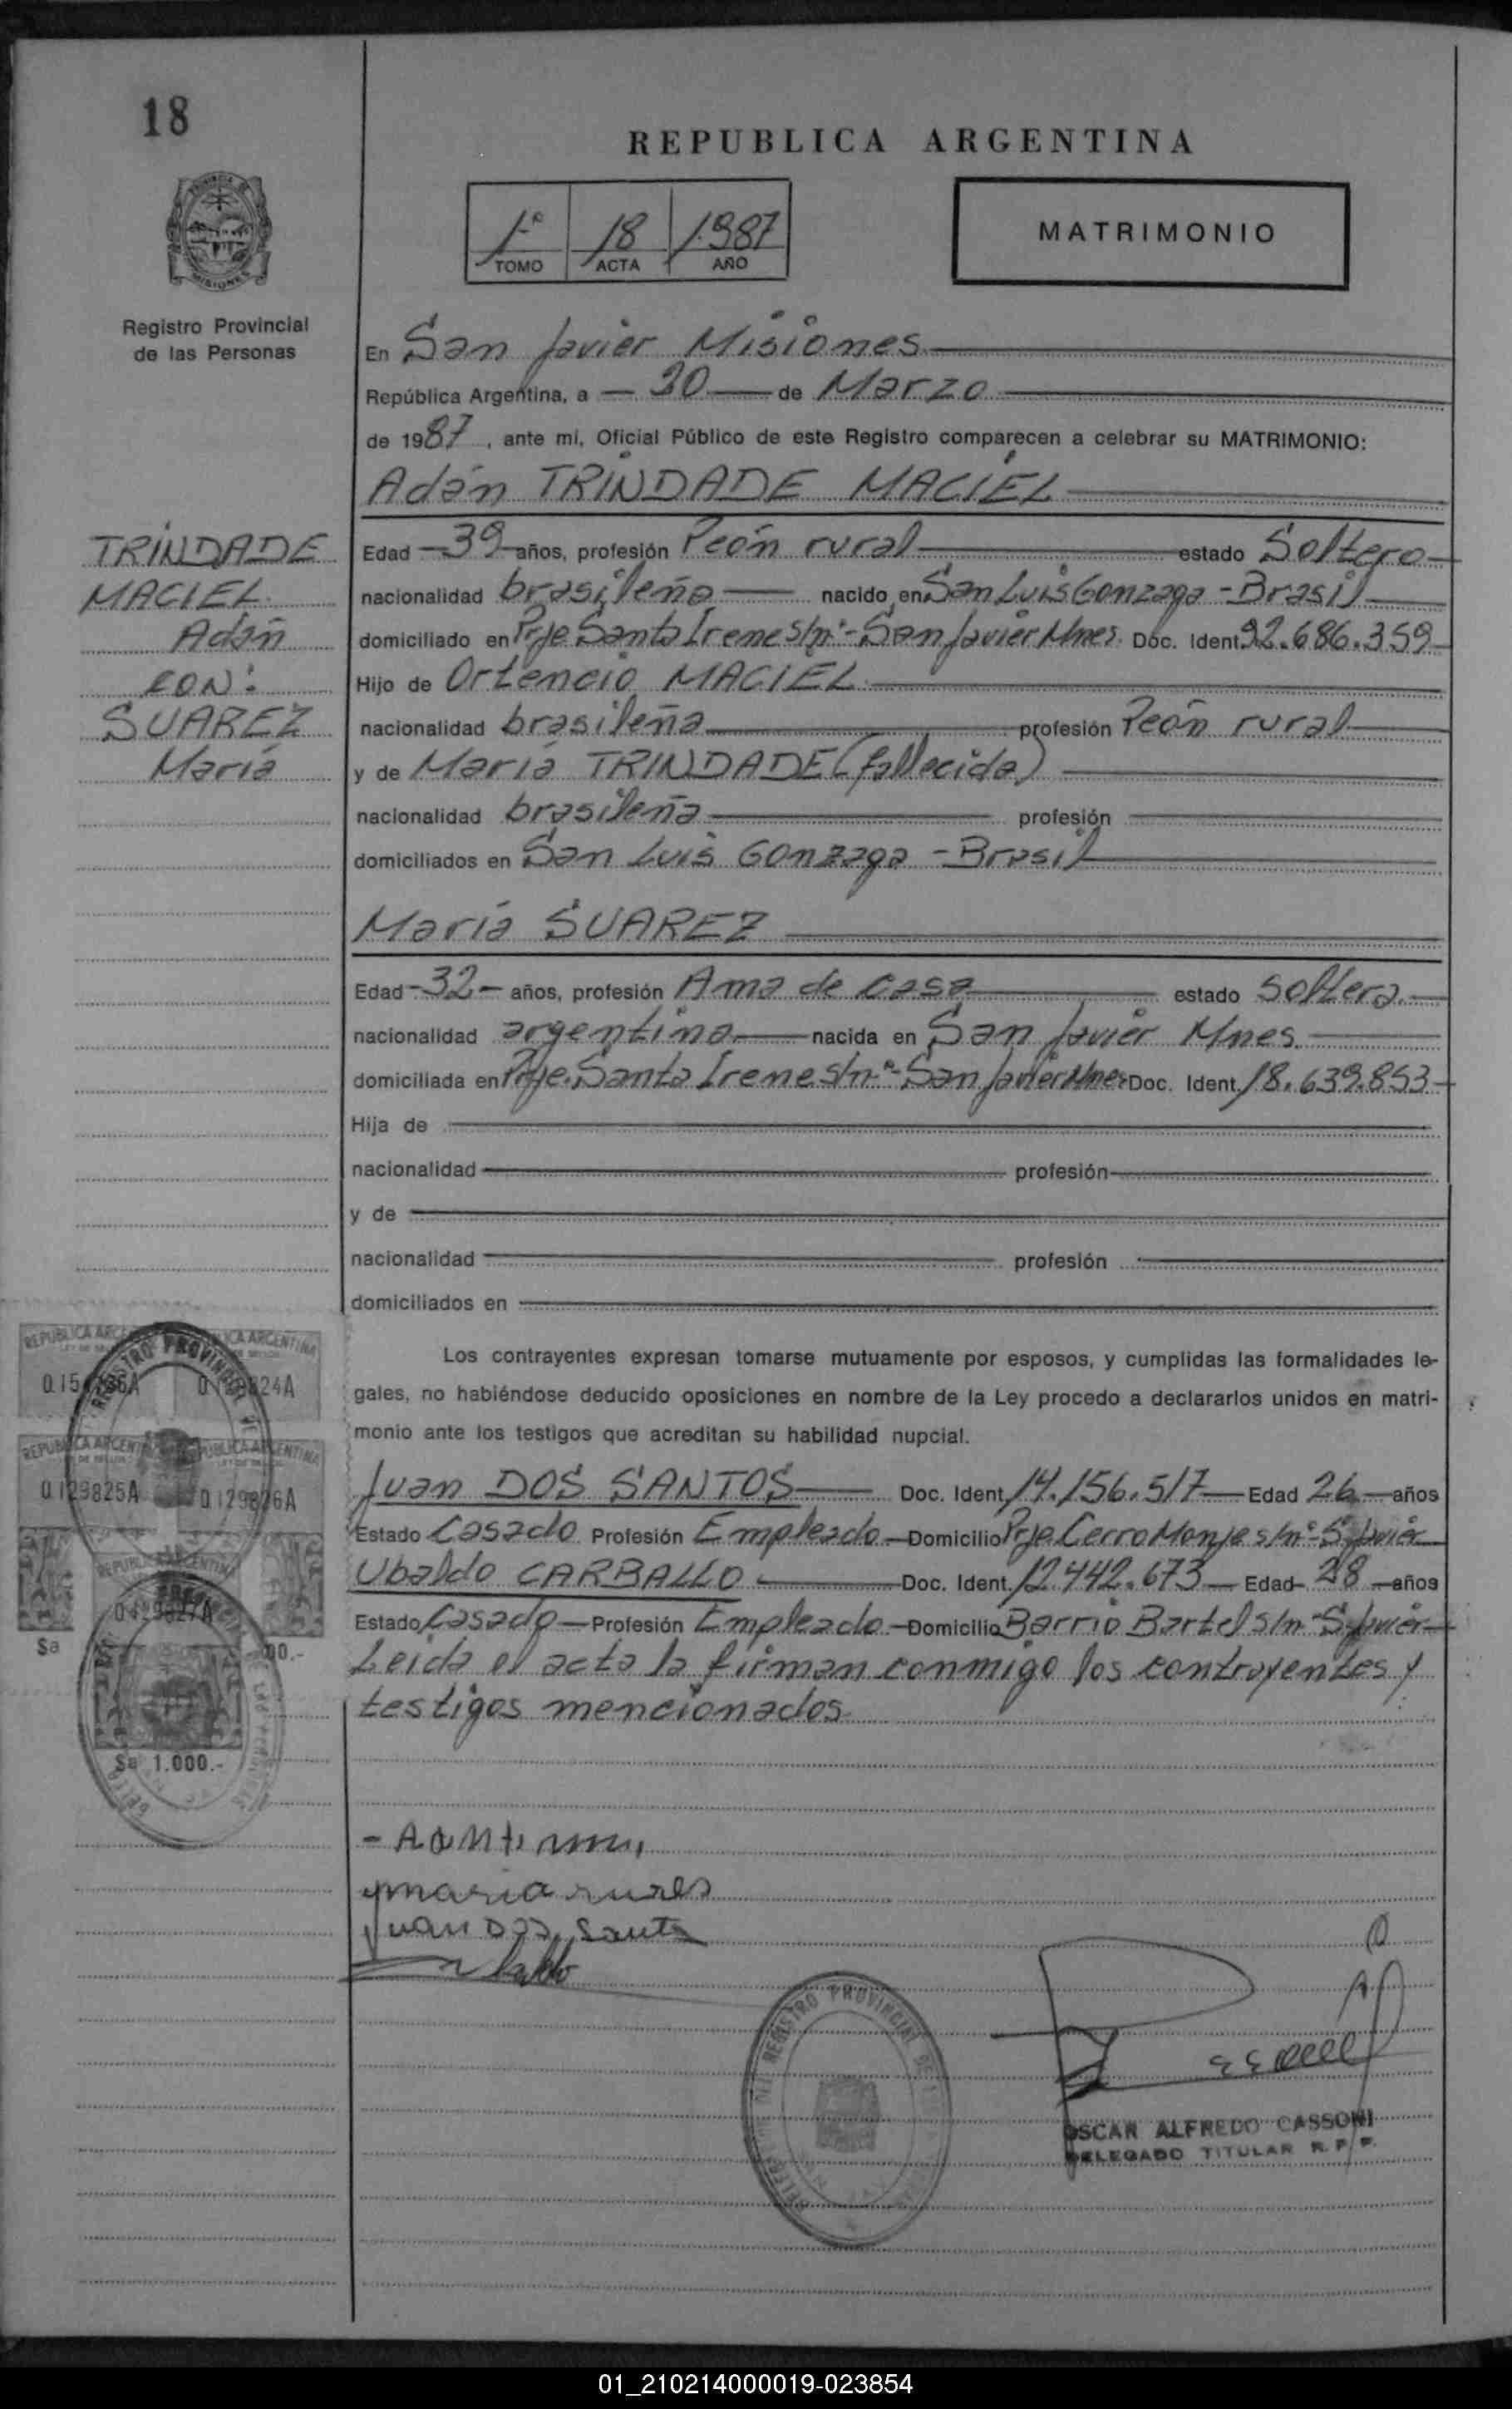 18
REPUBLICA ARGENTINA
1º 18 1987
TOMO ACTA AÑO
MATRIMONIO
PROVINCIA DE
MISIONES
Registro Provincial
de las Personas
En San Javier Misiones
República Argentina, a — 20 — de Marzo
de 1987, ante mí, Oficial Público de este Registro comparecen a celebrar su MATRIMONIO:
Adán TRINDADE MACIEL
TRINDADE
MACIEL
Adán
CON:
SUAREZ
María
Edad — 39 — años, profesión Peón rural estado Soltero
nacionalidad brasileña nacido en San Luis Gonzaga - Brasil
domiciliado en Prje Santa Irene s/nº - San Javier Mnes. Doc. Ident. 92.686.359
Hijo de Ortencio MACIEL
nacionalidad brasileña profesión Peón rural
y de María TRINDADE (fallecida)
nacionalidad brasileña profesión
domiciliados en San Luis Gonzaga - Brasil
María SUAREZ
Edad - 32 - años, profesión Ama de casa estado soltera
nacionalidad argentina nacida en San Javier Mnes
domiciliada en Prje. Santa Irene s/nº - San Javier Mnes Doc. Ident. 18.639.853
Hija de
nacionalidad profesión
y de
nacionalidad profesión
domiciliados en
Los contrayentes expresan tomarse mutuamente por esposos, y cumplidas las formalidades le-
gales, no habiéndose deducido oposiciones en nombre de la Ley procedo a declararlos unidos en matri-
monio ante los testigos que acreditan su habilidad nupcial.
Juan DOS SANTOS Doc. Ident. 14.156.517 Edad 26 años
Estado Casado Profesión Empleado Domicilio Prje. Cerro Monje s/nº - S. Javier
Ubaldo CARBALLO Doc. Ident. 12.442.673 Edad 28 años
Estado Casado Profesión Empleado Domicilio Barrio Bartel s/nº S. Javier
Leída el acta la firman conmigo los contrayentes y
testigos mencionados
REPUBLICA ARGENTINA
0.129825A 0.129826A
REPUBLICA ARGENTINA
$a 1.000.-
REGISTRO PROVINCIAL DE
maria sures
Juan Dos Santo
REGISTRO PROVINCIAL DE
OSCAR ALFREDO CASSONI
DELEGADO TITULAR R. P. P.
01_210214000019-023854